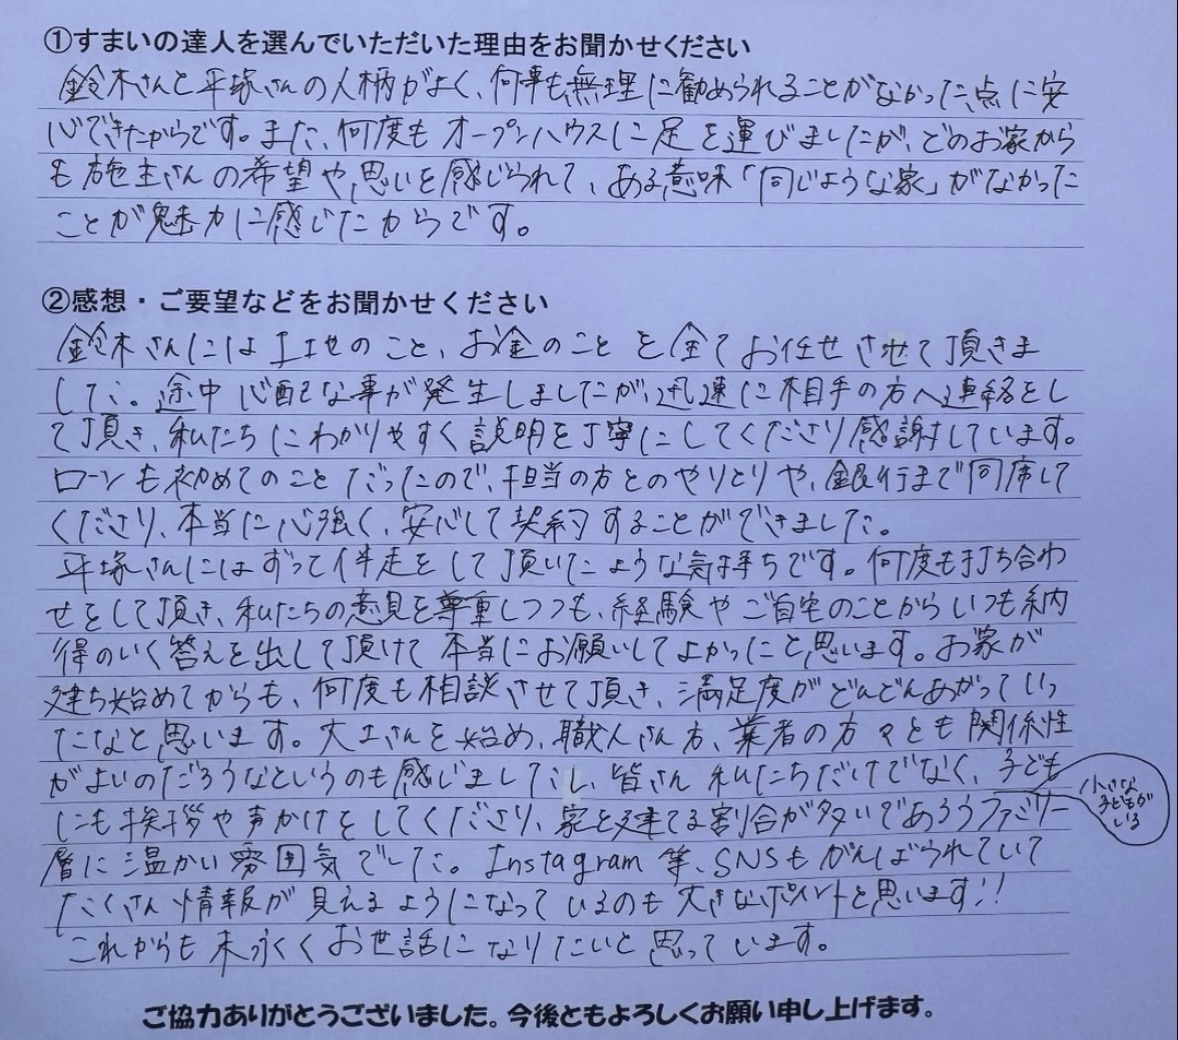 ①すまいの達人を選んでいただいた理由をお聞かせください
鈴木さんと平塚さんの人柄がよく、何事も無理に勧められることがなかった点に安
心できたからです。また、何度もオープンハウスに足を運びましたが、どのお家から
も施主さんの希望や思いを感じられて、ある意味「同じような家」がなかった
ことが魅力に感じたからです。
②感想・ご要望などをお聞かせください
鈴木さんには土地のこと、お金のことを全てお任せさせて頂きま
した。途中心配な事が発生しましたが、迅速に相手の方へ連絡をし
て頂き、私たちにわかりやすく説明を丁寧にしてくださり感謝しています。
ローンも初めてのことだったので、担当の方とのやりとりや、銀行まで同席して
くださり、本当に心強く、安心して契約することができました。
平塚さんにはずって伴走をして頂いたような気持ちです。何度も打ち合わ
せをして頂き、私たちの意見を尊重しつつも、経験やご自宅のことからいつも納
得のいく答えを出して頂けて本当にお願いしてよかったと思います。お家が
建ち始めてからも、何度も相談させて頂き、満足度がどんどんあがっていっ
たなと思います。大工さんを始め、職人さん方、業者の方々とも関係性
がよいのだろうなというのも感じましたし、皆さん私たちだけでなく、子ども
にも挨拶や声かけをしてくださり、家を建てる割合が多いであろうファミリー
小さな
子どもが
いる
層に温かい雰囲気でした。Instagram等、SNSもがんばられていて
たくさん情報が見えるようになっているのも大きなポイントと思います!!
これからも末永くお世話になりたいと思っています。
ご協力ありがとうございました。今後ともよろしくお願い申し上げます。